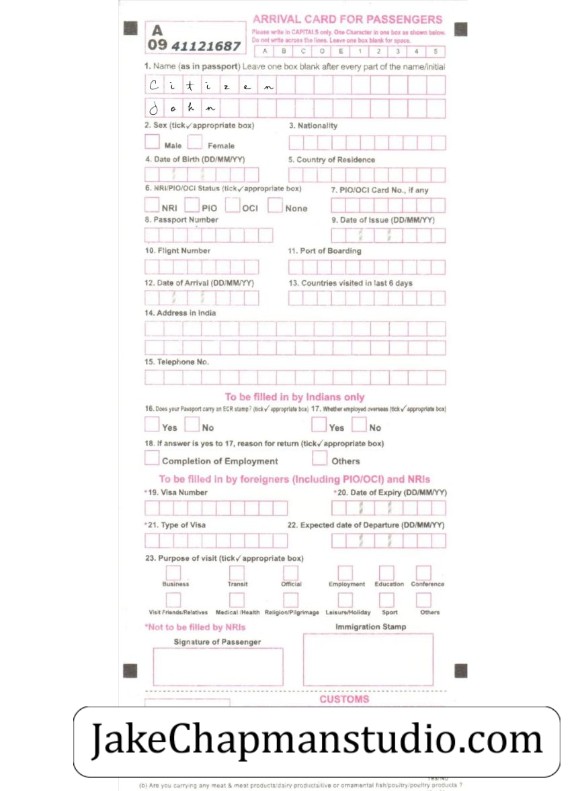 ARRIVAL CARD FOR PASSENGERS
Please write in CAPITALS only. One Character in one box as shown below.
Do not write across the lines. Leave one box blank for space.
A
09 41121687
A B C D E 1 2 3 4 5
1. Name (as in passport) Leave one box blank after every part of the name/initial
Citizen
John
2. Sex (tick✓appropriate box) 3. Nationality
Male Female
4. Date of Birth (DD/MM/YY) 5. Country of Residence
6. NRI/PIO/OCI Status (tick✓appropriate box) 7. PIO/OCI Card No., if any
NRI PIO OCI None
8. Passport Number 9. Date of Issue (DD/MM/YY)
10. Flight Number 11. Port of Boarding
12. Date of Arrival (DD/MM/YY) 13. Countries visited in last 6 days
14. Address in India
15. Telephone No.
To be filled in by Indians only
16. Does your Passport carry an ECR stamp? (tick✓ appropriate box) 17. Whether employed overseas (tick✓ appropriate box)
Yes No Yes No
18. If answer is yes to 17, reason for return (tick✓appropriate box)
Completion of Employment Others
To be filled in by foreigners (Including PIO/OCI) and NRIs
*19. Visa Number *20. Date of Expiry (DD/MM/YY)
*21. Type of Visa 22. Expected date of Departure (DD/MM/YY)
23. Purpose of visit (tick✓appropriate box)
Business Transit Official Employment Education Conference
Visit Friends/Relatives Medical /Health Religion/Pilgrimage Leisure/Holiday Sport Others
*Not to be filled by NRIs Immigration Stamp
Signature of Passenger
CUSTOMS
JakeChapmanstudio.com
(b) Are you carrying any meat & meat products/dairy products/live or ornamental fish/poultry/poultry products ?